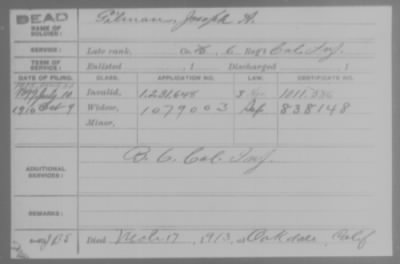 DEAD
NAME OF SOLDIER:
Gilman, Joseph A.
SERVICE:
Late rank, Co. K, 6 Reg't Cal. Inf.
TERM OF SERVICE:
Enlisted , 1 Discharged , 1
DATE OF FILING. CLASS. APPLICATION NO. LAW. CERTIFICATE NO.
July 10 Invalid, 1,231,648
1916 Oct 9 Widow, 1079003 838148
Minor,
ADDITIONAL SERVICES:
B. 6. Cal. Inf.
REMARKS:
Died Mch 17, 1913, at Oakdale, Calif